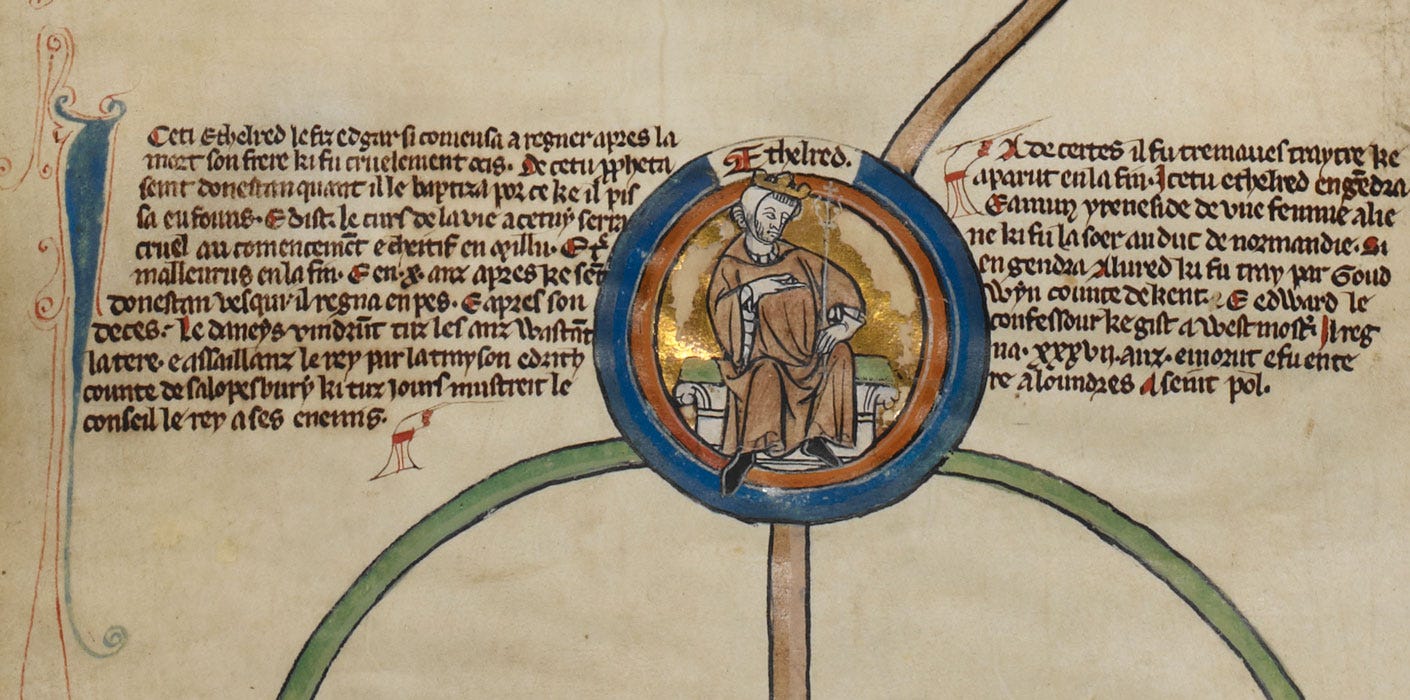 Iceti Ethelred le fiz edgar si comensa a regner apres la
mort son frere ki fu cruelement ocis. De cetu ppheta
seint donestan quant il le baptiza por ce ke il pis
sa en founs. E dist. le curs de la vie a cetuy serra
cruel au comencemēt e cheitif en
malleurus en la fin. E en .x. anz apres ke seīt
donestan vesqui il regna en pes. E apres son
deces. Le daneys vindrūt tuz les anz wastāt
la tere. e assaillanz le rey par la trayson edrith
counte de salopesbury ki tuz iours mustreit le
conseil le rey a ses enemis.
Ethelred.
de certes il fu tremaues traytre ke
aparut en la fin. Icetu ethelred engēdra
Eamun yreneside de vne femme alie
ne ki fu la soer au duc de normandie. Si
engendra Alured ki fu tray par Goud
wyn counte de kent. E edward le
confessour ke gist a westmostr. Il reg
na .xxxvii. anz. e morut e fu ente
re a loundres A seint pol.